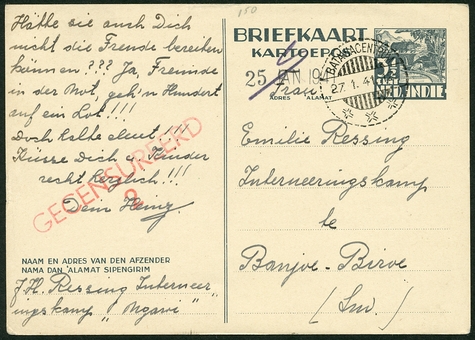 150
Hätte sie auch Dich
nicht die Freude bereiten
können??? Ja, Freunde
in der Not, geh'n Hundert
auf ein Lot!!!
Doch halte aleut!!!
Küsse Dich u. Kinder
recht herzlich!!!
Dein Heinz
GECENSUREERD
2
NAAM EN ADRES VAN DEN AFZENDER
NAMA DAN 'ALAMAT SIPENGIRIM
J.H. Ressing Interneer
ingskamp "Ngawi"
BRIEFKAART
KARTOEPOS
25 JAN 194
BATAVIACENTRUM
27.1.41
3½
NED. INDIE
Frau
ADRES ALAMAT
Emilie Ressing
Interneeringskamp
te
Banjoe-Biroe
(Sm.)